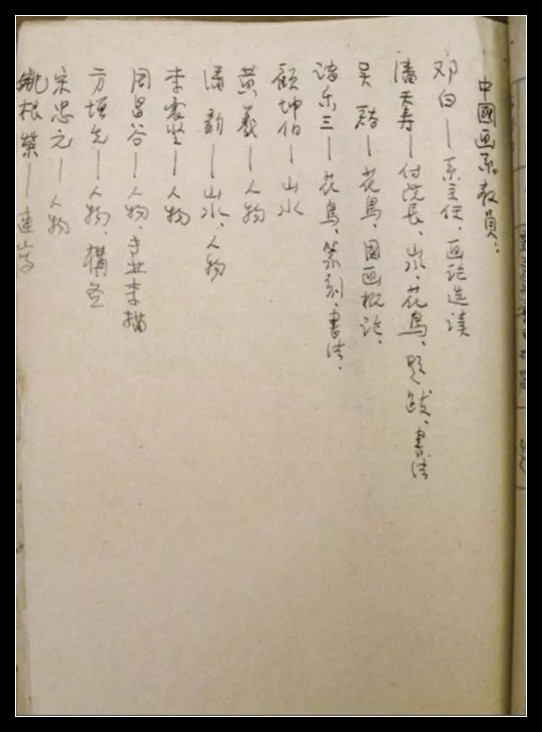 中國画系教員：
邓白—系主任、画论选读
潘天寿—付院长、山水、花鳥、题跋、書法
吴茀—花鳥、国画概论、
诸乐三—花鳥、篆刻、書法、
顾坤伯—山水
黄羲—人物
潘韵—山水、人物
李震坚—人物
周昌谷—人物、
方增先—人物、構图
宋忠元—人物
姚根荣—